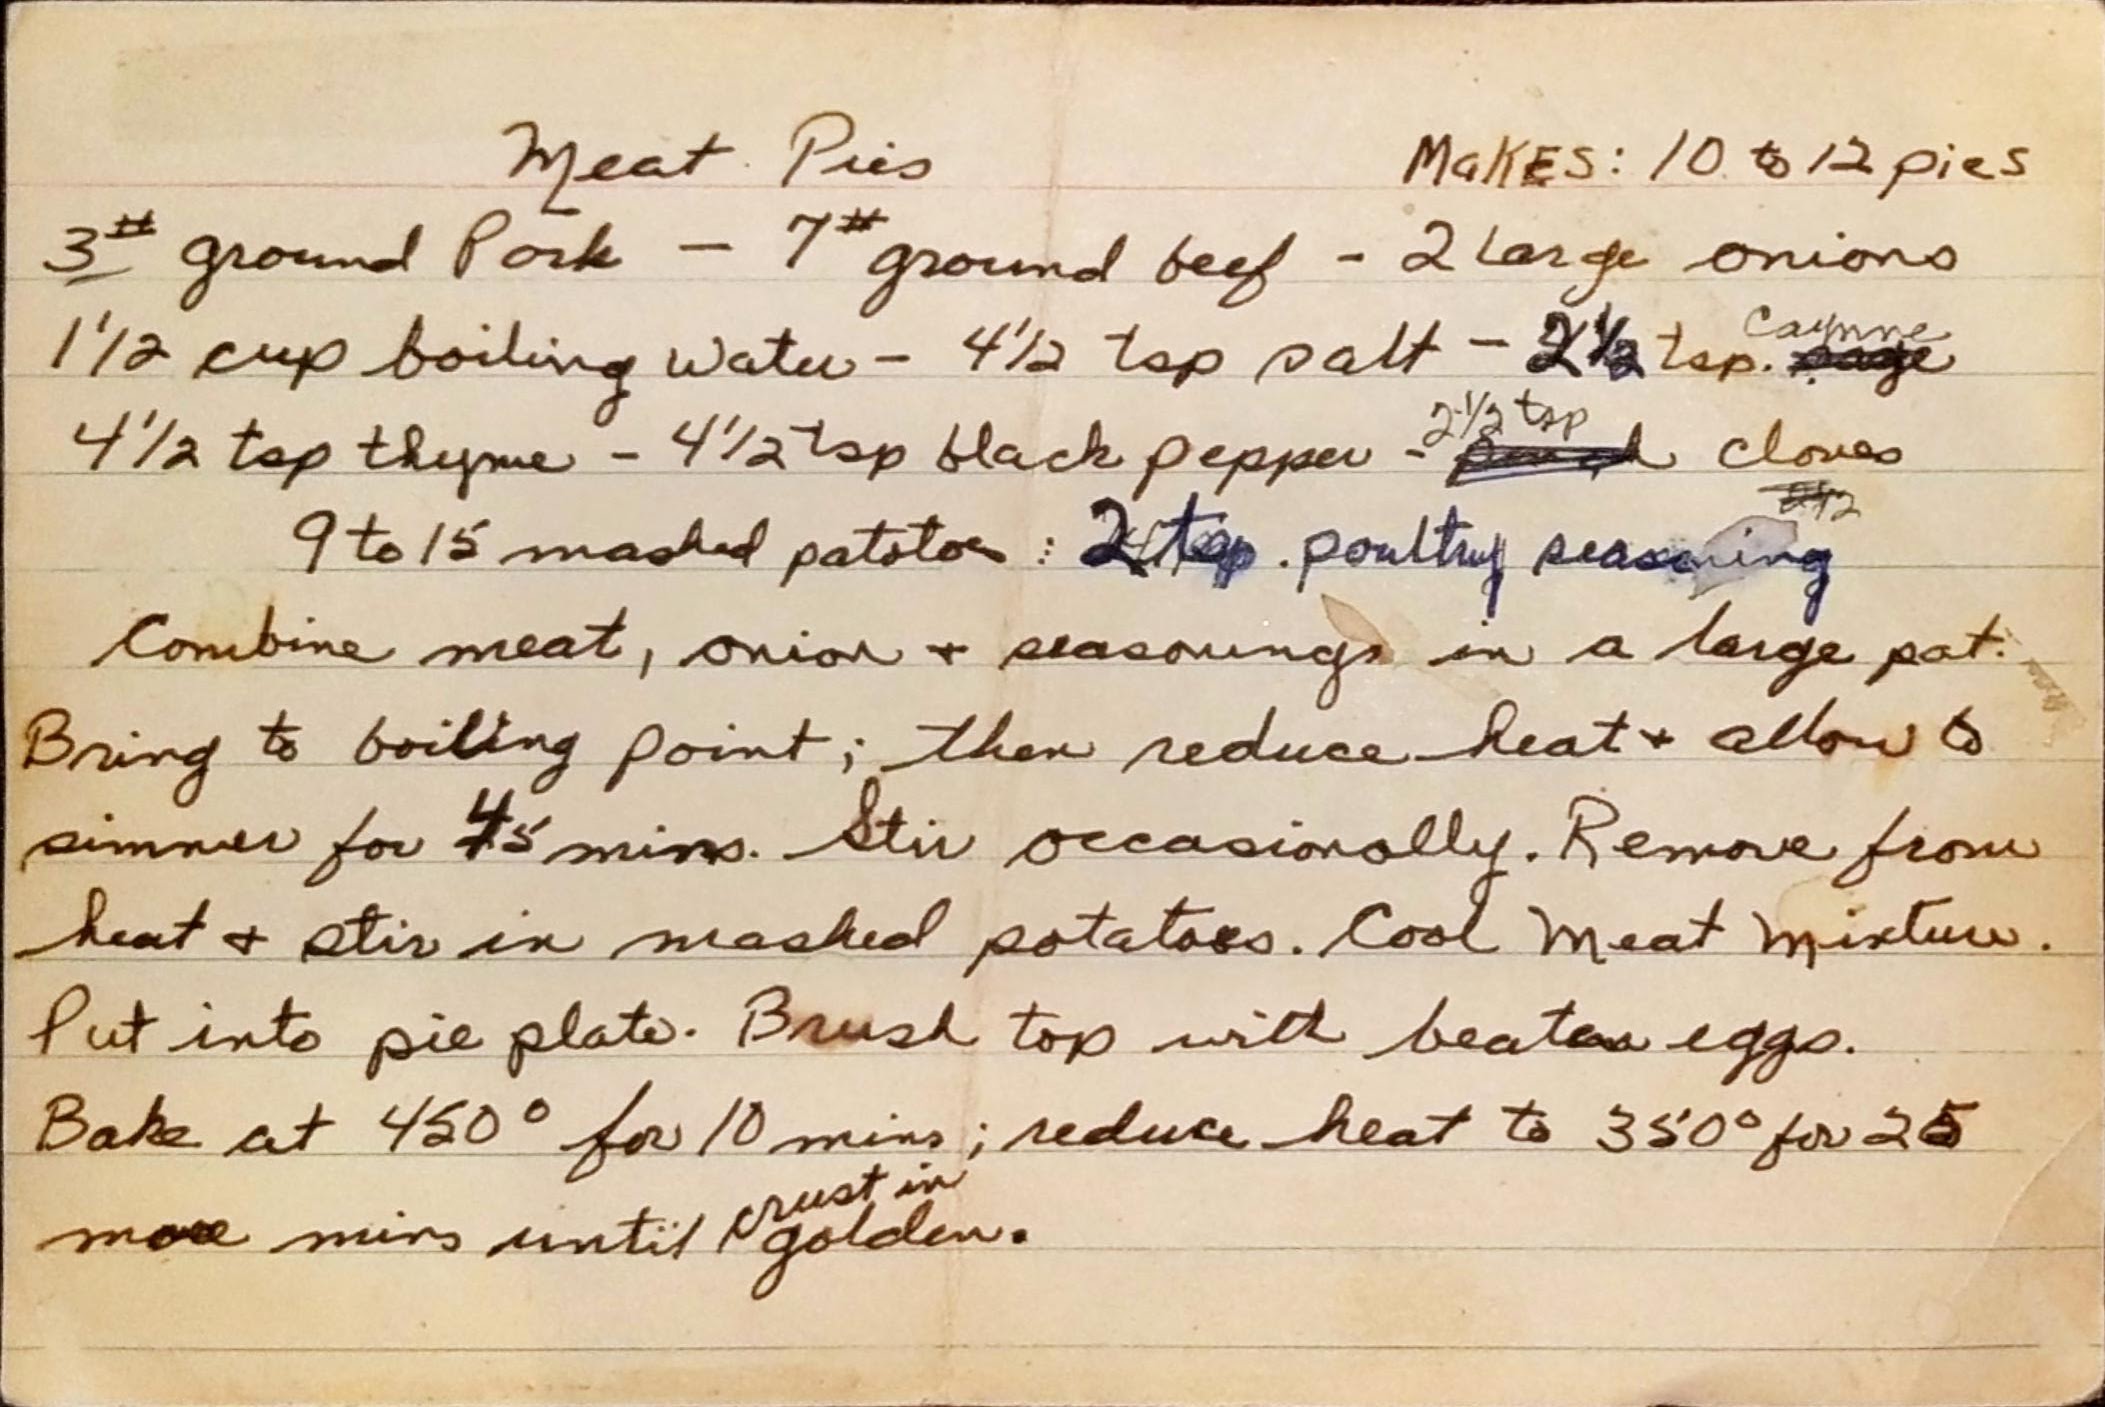 Meat Pies MaKES: 10 to 12 pies
3# ground Pork - 7# ground beef - 2 Large onions
1 1/2 cup boiling water - 4 1/2 tsp salt - 2 1/2 tsp. Caynne
4 1/2 tsp thyme - 4 1/2 tsp black pepper - 2 1/2 tsp cloves
9 to 15 mashed patotoes : 2 tsp. poultry seasoning
Combine meat, onion + seasonings in a large pot.
Bring to boiling point; then reduce heat + allow to
simmer for 45 mins. Stir occasionally. Remove from
heat + stir in mashed potatoes. Cool Meat Mixture.
Put into pie plate. Brush top with beaten eggs.
Bake at 450° for 10 mins; reduce heat to 350° for 25
more mins until crust in golden.